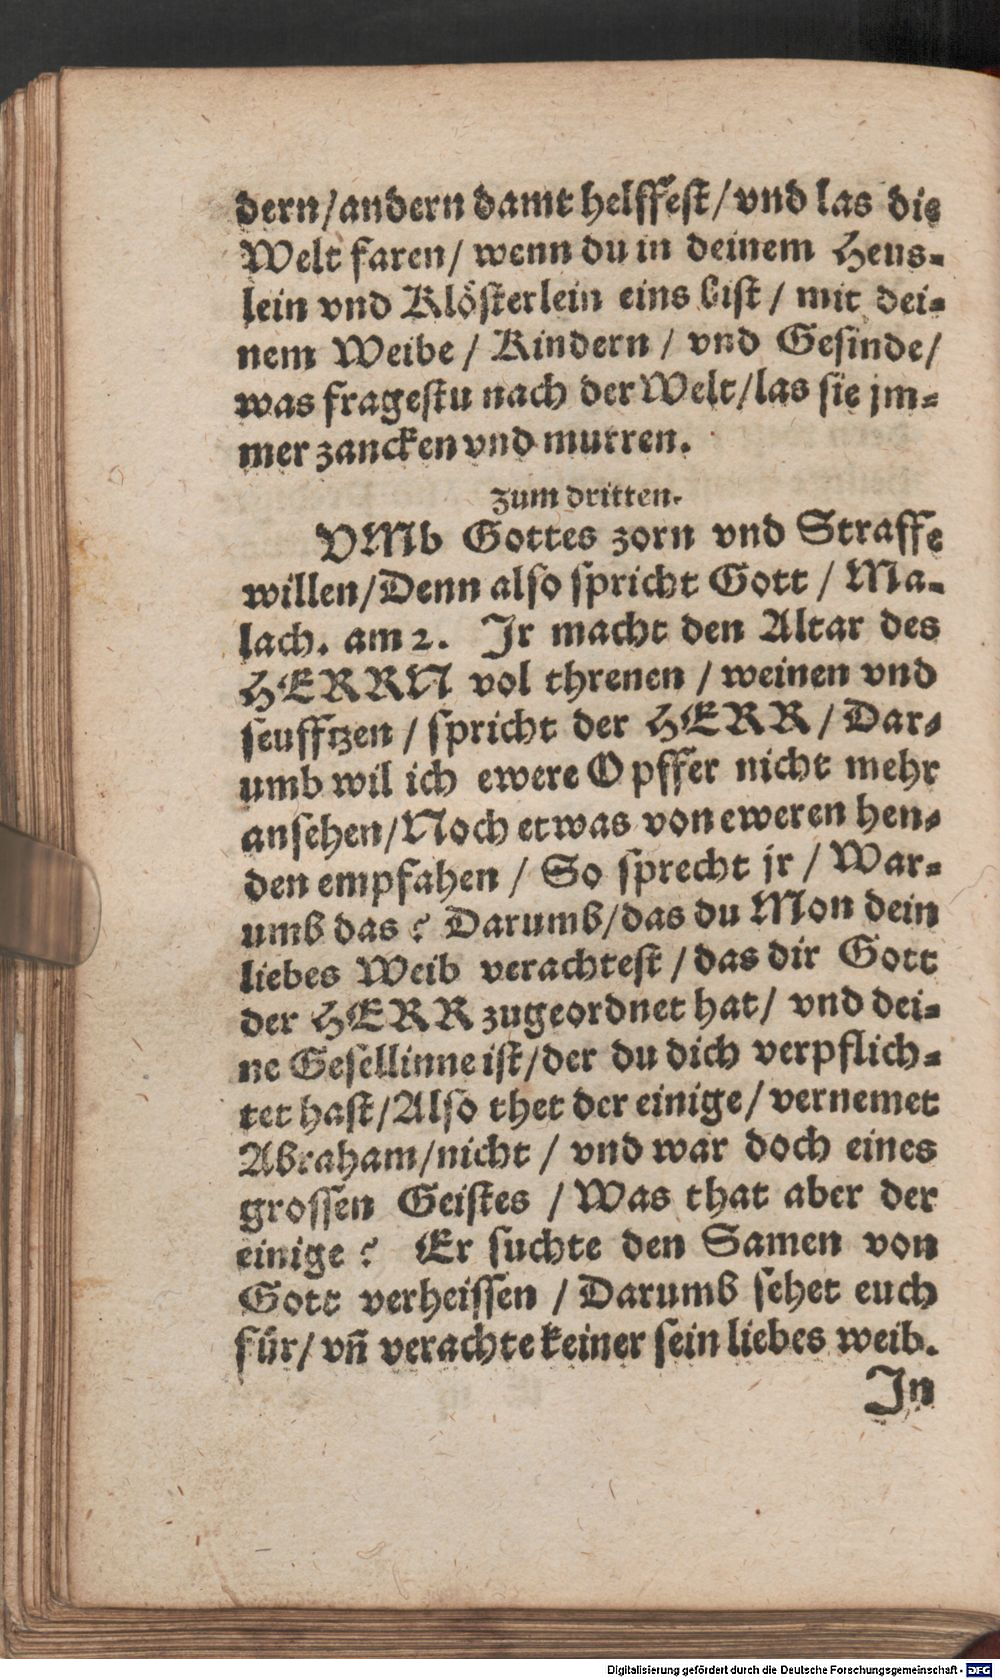 dern/andern damt helffest/vnd las die
Welt faren/ wenn du in deinem Heus-
lein vnd Klösterlein eins bist/ mit dei-
nem Weibe/ Kindern/ vnd Gesinde/
was fragestu nach der Welt/las sie jm-
mer zancken vnd murren.
zum dritten.
VMb Gottes zorn vnd Straffe
willen/Denn also spricht Gott/ Ma-
lach. am 2. Jr macht den Altar des
HERRN vol threnen/ weinen vnd
seufftzen/ spricht der HERR/ Dar-
umb wil ich ewere Opffer nicht mehr
ansehen/Noch etwas von eweren hen-
den empfahen/ So sprecht jr/ War-
umb das? Darumb/das du Mon dein
liebes Weib verachtest/das dir Gott
der HERR zugeordnet hat/ vnd dei-
ne Gesellinne ist/der du dich verpflich-
tet hast/Also thet der einige/ vernemet
Abraham/nicht/ vnd war doch eines
grossen Geistes/ Was that aber der
einige? Er suchte den Samen von
Gott verheissen/ Darumb sehet euch
für/ vñ verachte keiner sein liebes weib.
In
Digitalisierung gefördert durch die Deutsche Forschungsgemeinschaft - DFG